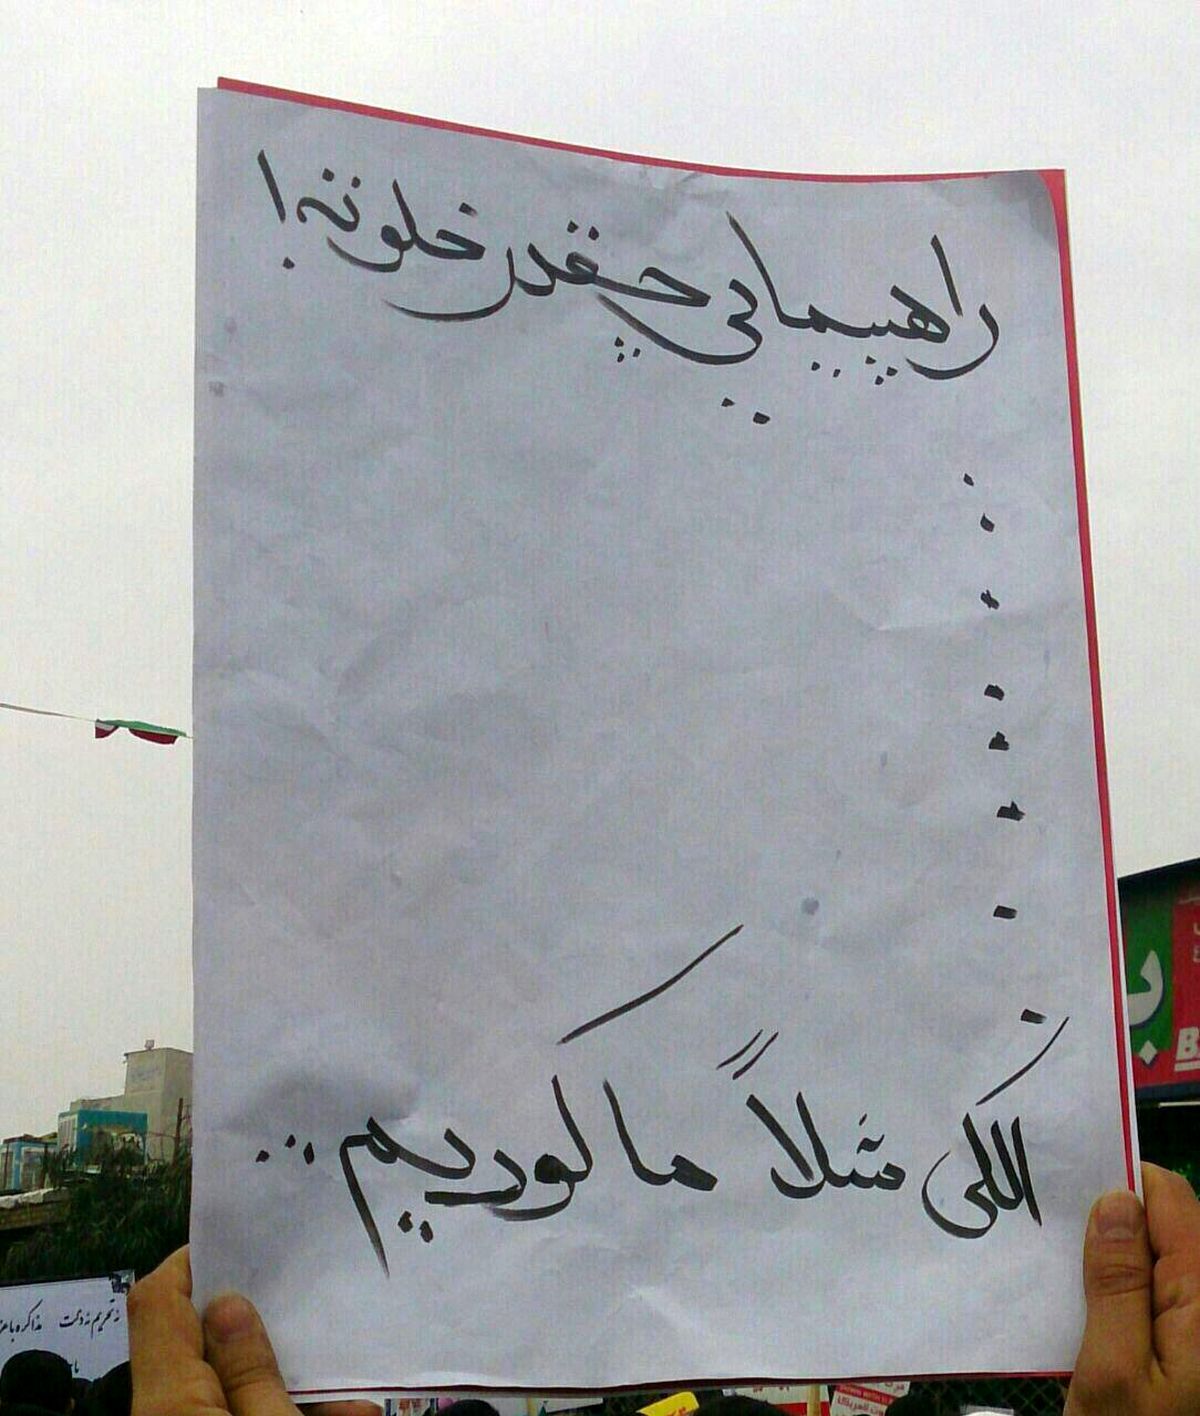 راهپیمایی چقدر خلوته!
........
الکی مثلاً ما کوریم...
نه تحریم نه ذلت مذاکره با عزت
ب
B